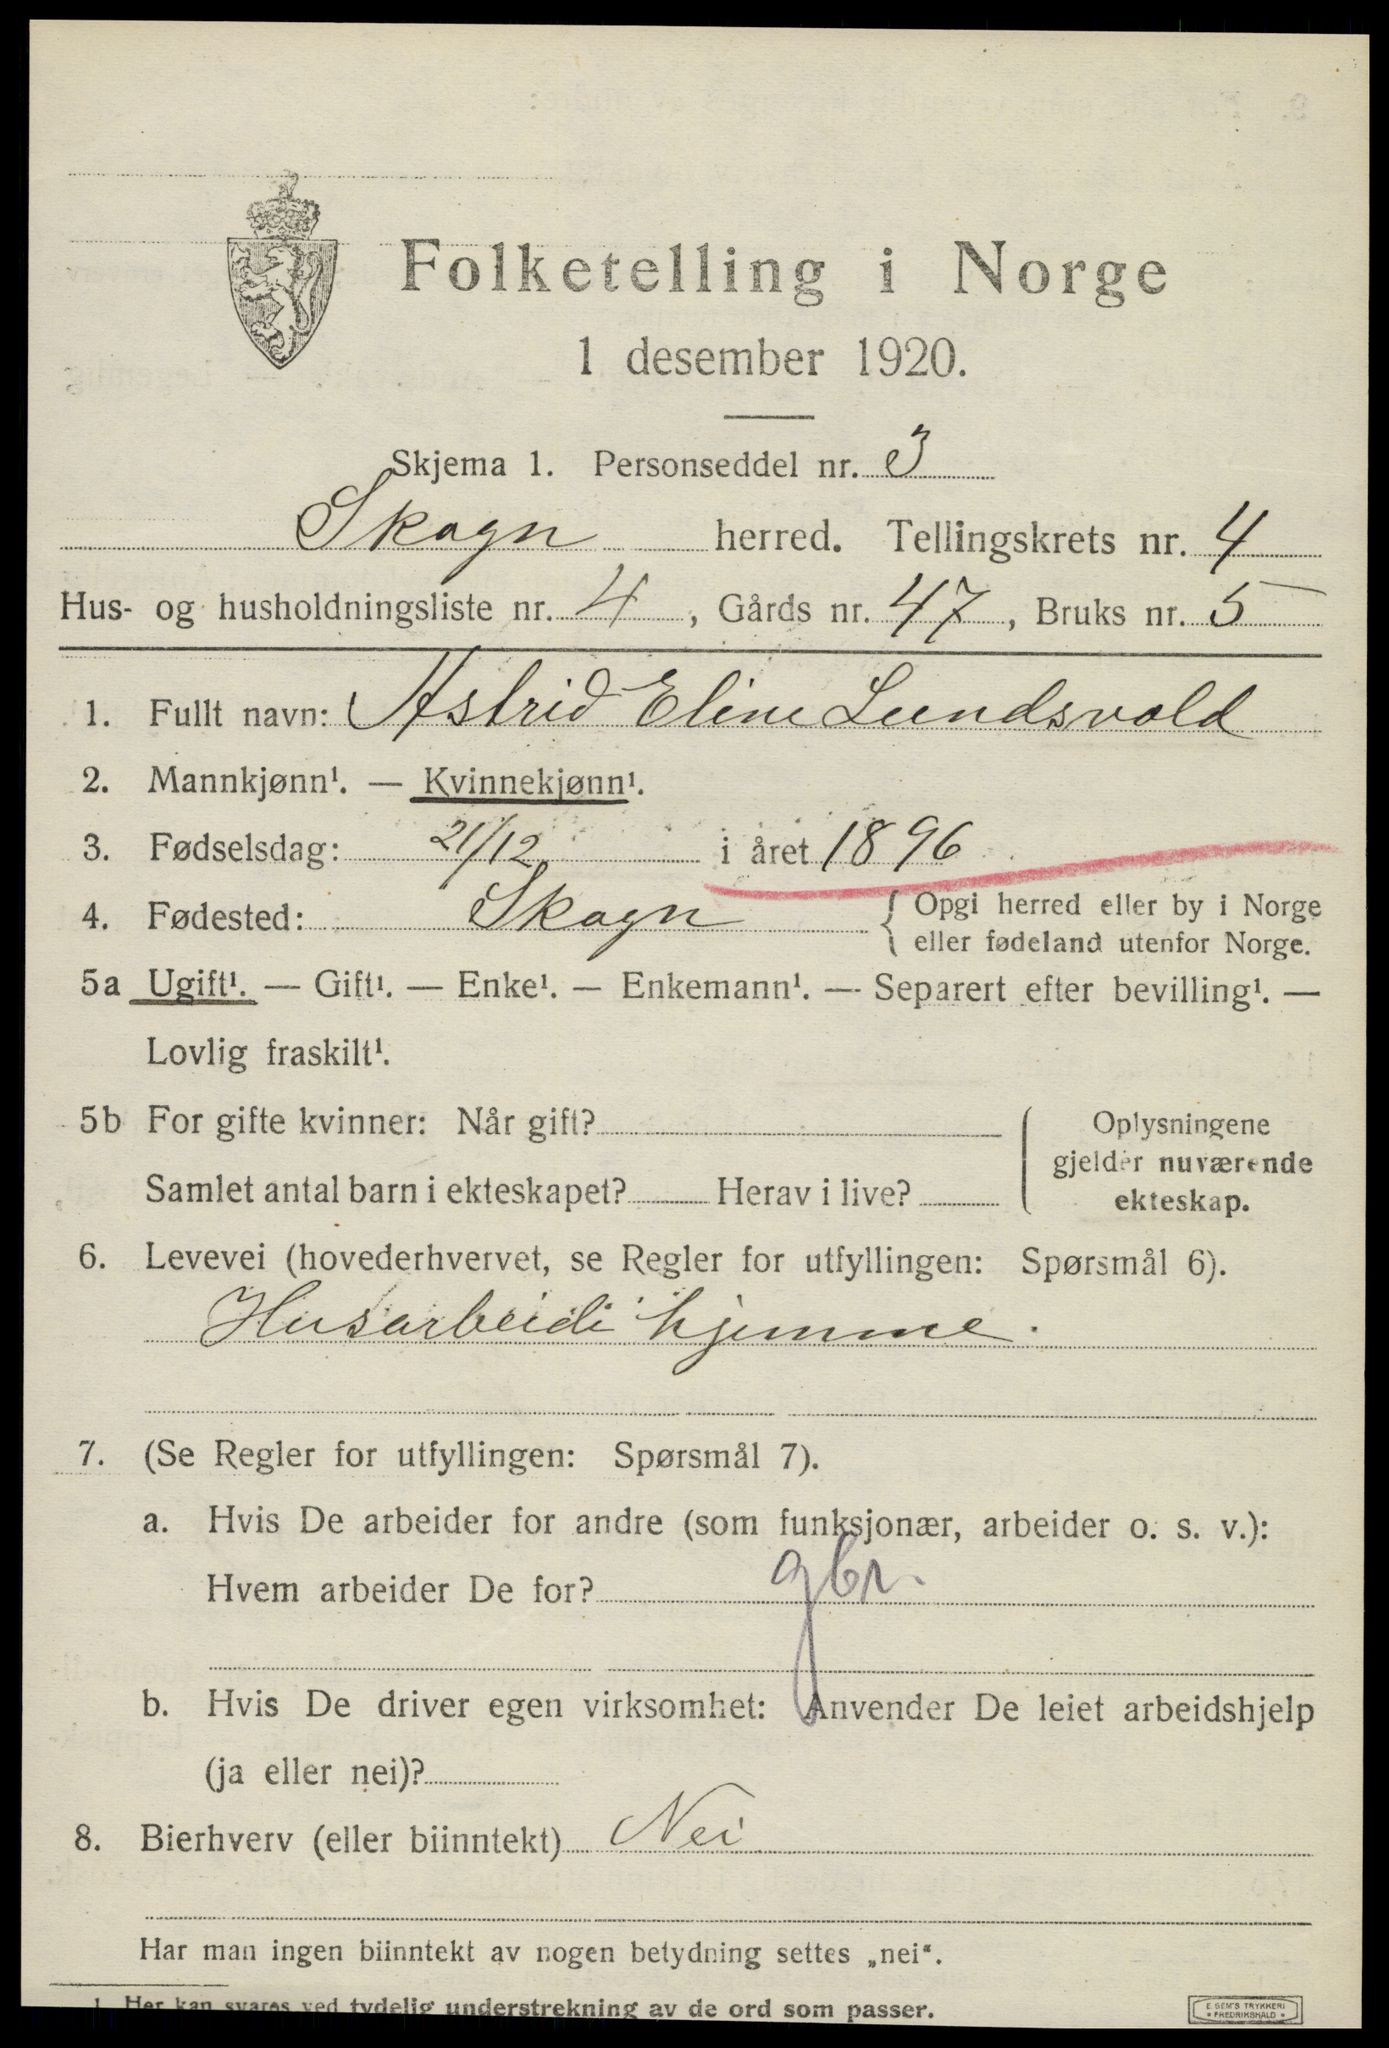 Folketelling i Norge
1 desember 1920.
Skjema 1. Personseddel nr. 3
Skogn herred. Tellingskrets nr. 4
Hus- og husholdningsliste nr. 4, Gårds nr. 47, Bruks nr. 5
1. Fullt navn: Astrid Eline Lundsvold
2. Mannkjønn¹. — Kvinnekjønn¹.
3. Fødselsdag: 21/12 i året 1896
4. Fødested: Skogn { Opgi herred eller by i Norge
eller fødeland utenfor Norge.
5a Ugift¹. — Gift¹. — Enke¹. — Enkemann¹. — Separert efter bevilling¹. —
Lovlig fraskilt¹.
5b For gifte kvinner: Når gift?
Samlet antal barn i ekteskapet? Herav i live?
Oplysningene
gjelder nuværende
ekteskap.
6. Levevei (hovederhvervet, se Regler for utfyllingen: Spørsmål 6).
Husarbeide i hjemme.
7. (Se Regler for utfyllingen: Spørsmål 7).
a. Hvis De arbeider for andre (som funksjonær, arbeider o. s. v.):
Hvem arbeider De for? gbr.
b. Hvis De driver egen virksomhet: Anvender De leiet arbeidshjelp
(ja eller nei)?
8. Bierhverv (eller biinntekt) Nei
Har man ingen biinntekt av nogen betydning settes „nei“.
1. Her kan svares ved tydelig understrekning av de ord som passer.
E. SEM'S TRYKKERI
• FREDRIKSHALD •